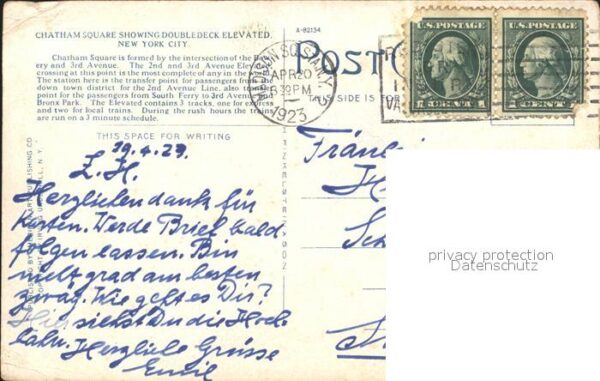 CHATHAM SQUARE SHOWING DOUBLEDECK ELEVATED,
NEW YORK CITY.
Chatham Square is formed by the intersection of the Bow-
ery and 3rd Avenue. The 2nd and 3rd Avenue Elevated
crossing at this point is the most complete of any in the city.
The station here is the transfer point for passengers from the
down town district for the 2nd Avenue Line, also transfer
point for the passengers from South Ferry to 3rd Avenue
Bronx Park. The Elevated contains 3 tracks, one for express
and two for local trains. During the rush hours the trains
are run on a 3 minute schedule.
A-82154
POST
THIS SIDE IS FO
MADISON SQ. STA. N.Y.
APR 20
6 30 PM
1923
U.S. POSTAGE
1 CENT 1
U.S. POSTAGE
1 CENT
THIS SPACE FOR WRITING
19.4.23.
L. H.
Herzlichen dank für
Karten. Werde Brief bald
folgen lassen. Bin
nicht grad am besten
zwäg. Wie geht es Dir?
Hier siehst Du die Hoch
bahn. Herzliche Grüsse
Emil
Fräulei
privacy protection
Datenschutz